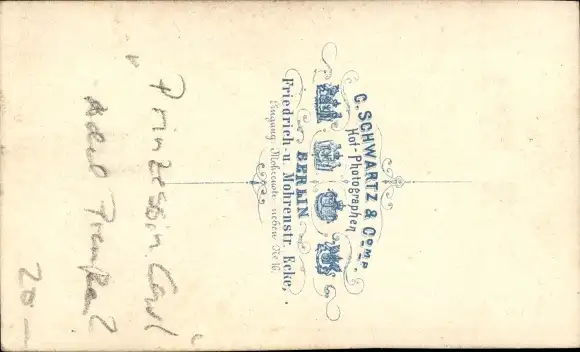 C. SCHWARTZ & Comp.
Hof-Photographen
BERLIN
Friedrich- u. Mohrenstr. Ecke,
Eingang Mohrenstr. neben No 16.
Prinzessin Carl
20 —